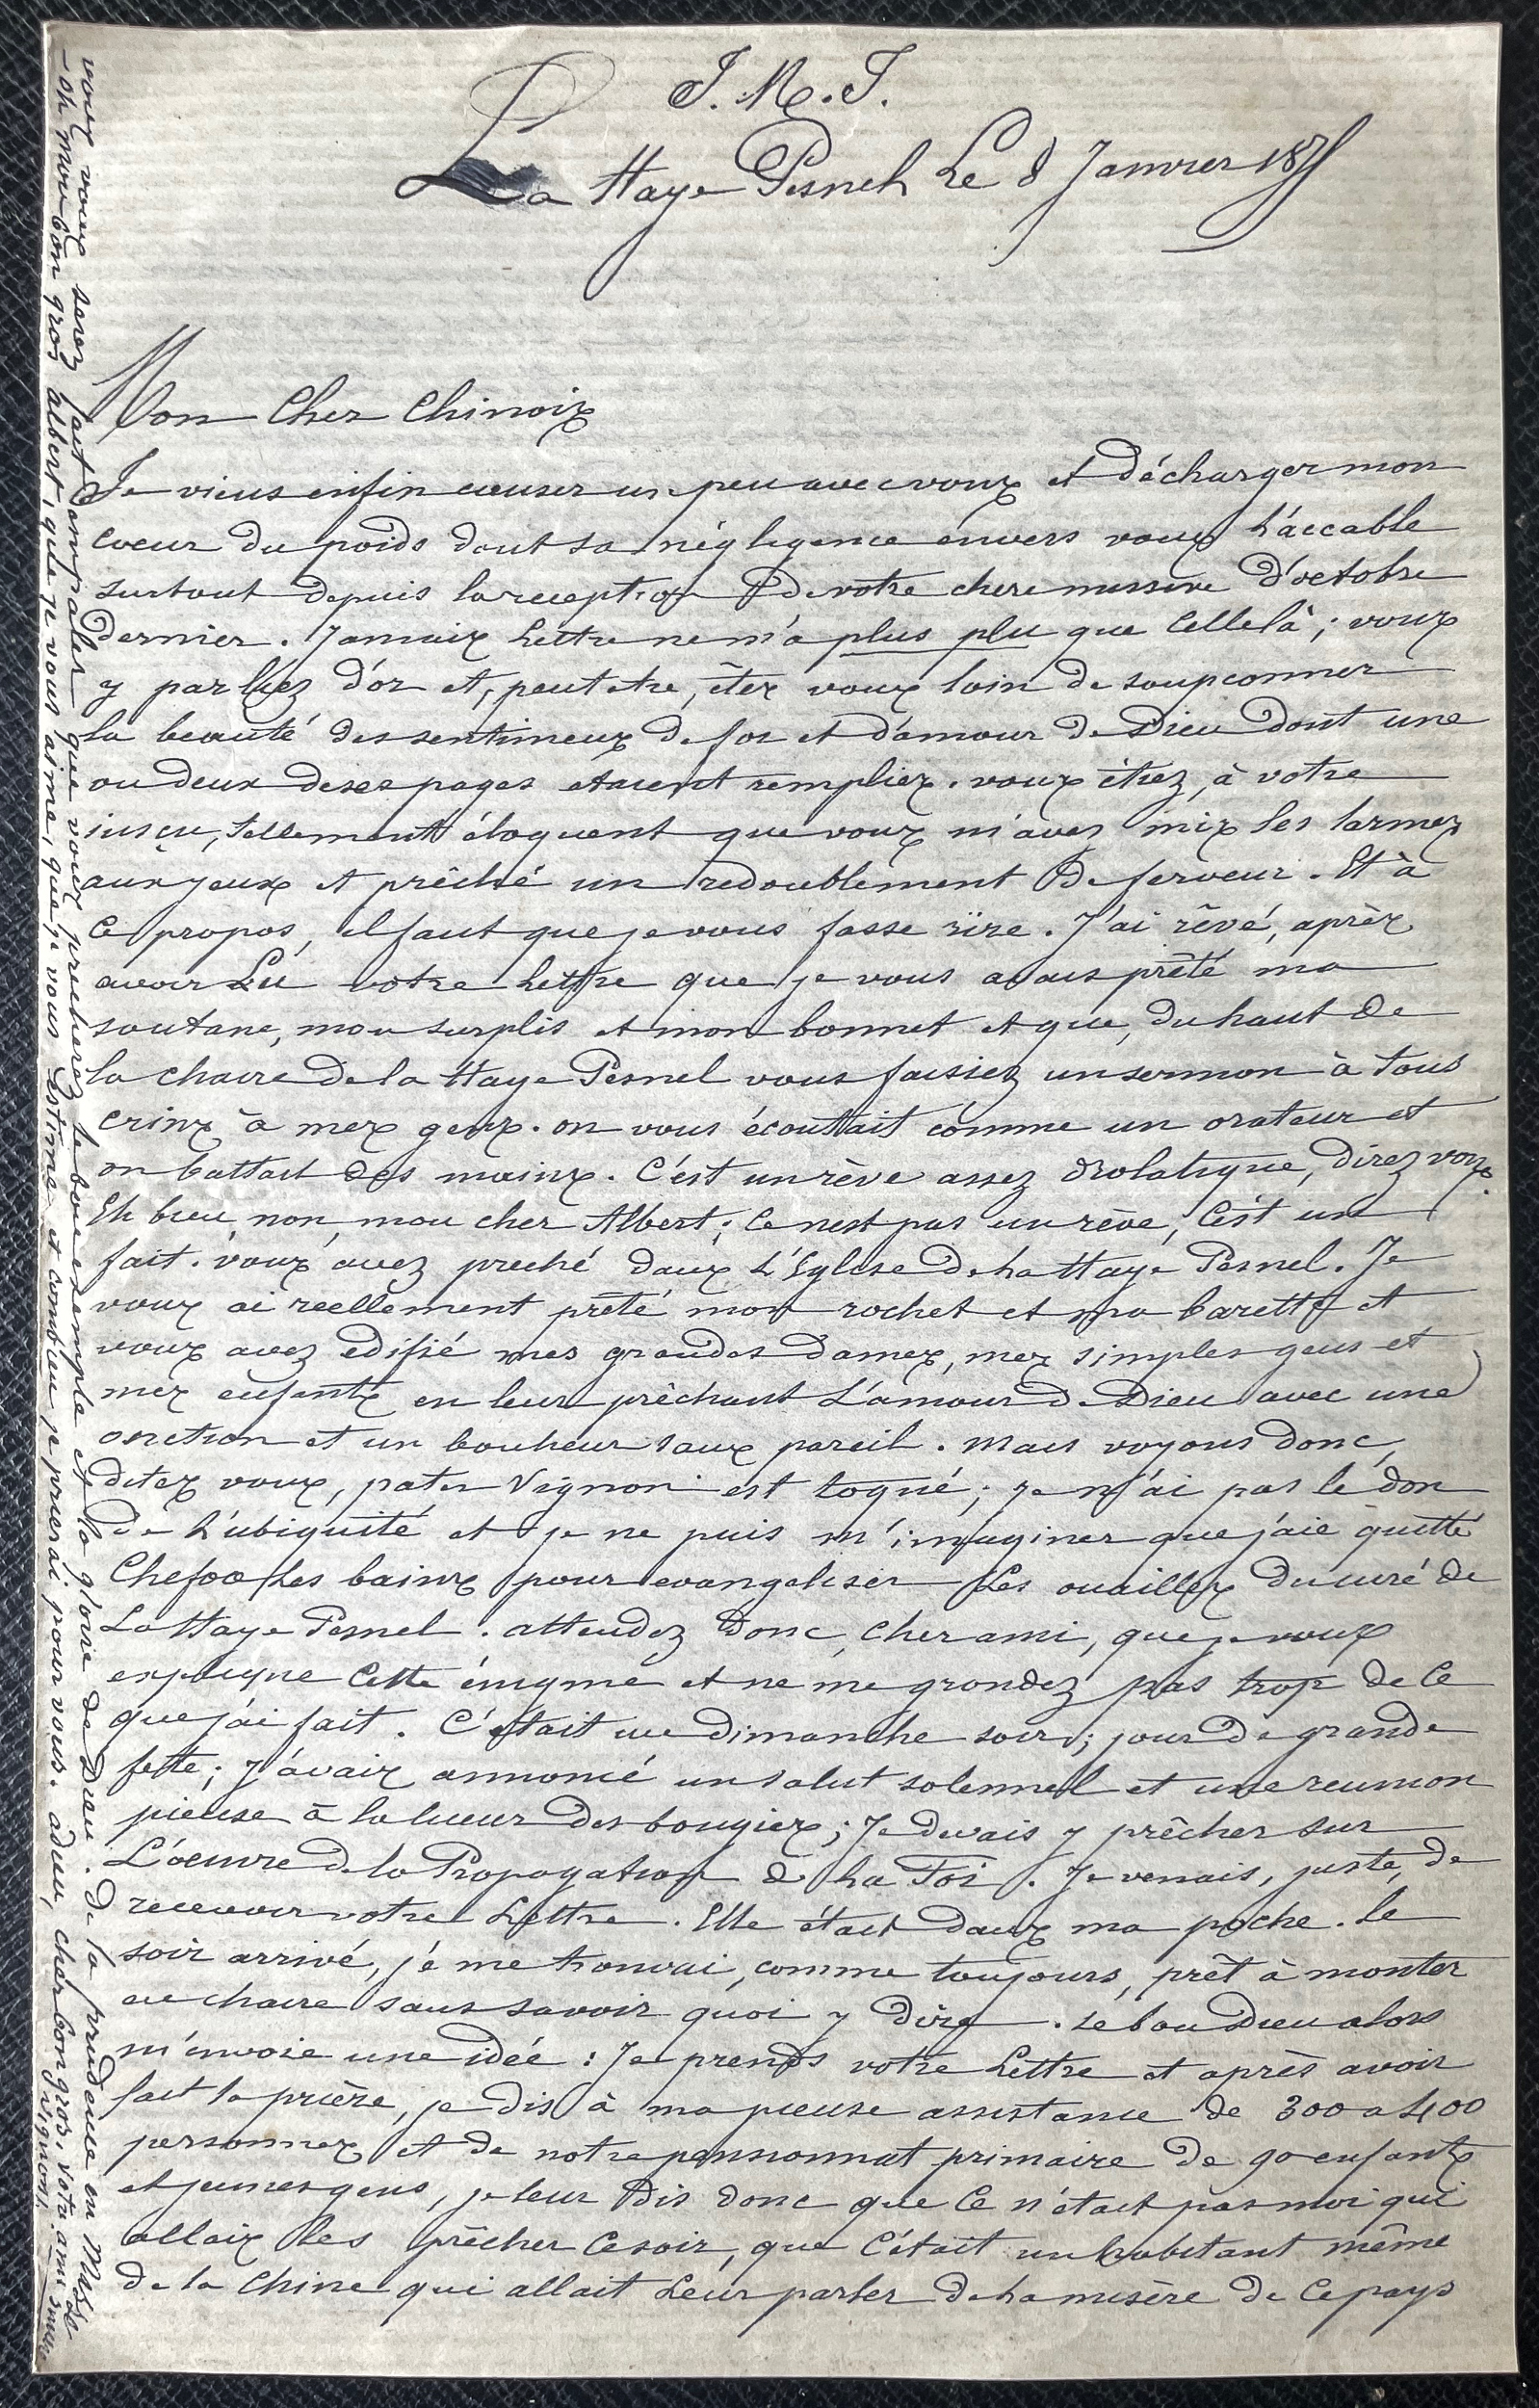 J. M. J.
La Haye Pesnel Le 8 Janvier 187
Mon Cher Chinoix
Je viens enfin causer un peu avec voux et décharger mon
coeur du poids dont sa négligence envers voux l'accable
surtout depuis la reception de votre chere missive d'octobre
dernier. Jamaix Lettre ne m'a plus plu que Cellelà ; voux
y parliez d'or et, peut etre, êtex voux loin de soupconner
la beauté des sentimeux de foi et d'amour de Dieu dont une
ou deux de ses pages etaient rempliex. voux étiez, à votre
insçu, tellement éloquent que voux m'avez mix les larmex
aux yeux et prêché un redoublement de ferveur. Et à
Ce propos, il faut que je vous fasse rire. J'ai rêvé, aprèx
avoir Lu votre Lettre que je vous avais prêté ma
soutane, mon surplis et mon bonnet et que, du haut de
la chaire de la Haye Pesnel vous faisiez un sermon à tous
crinx à mex genx. on vous écouttait comme un orateur et
on battait des mainx. C'est un rève assez drolatique, direz voux.
Eh bien, non, mon cher Albert ; Ce n'est pas un rève, C'est un
fait. voux avez preché danx L'Eglise de La Haye Pesnel. Je
voux ai reellement prêté mon rochet et ma barette et
voux avez edifié mes grandes damex, mex simples gens et
mex enfantx en leur prêchant L'amour de Dieu avec une
onction et un bonheur sanx pareil. Mais voyons donc,
ditex voux, pater Vignon est toqué ; je n'ai pas le don
de L'ubiquité et je ne puis m'imaginer que j'aie quitté
Chefoo les bainx pour evangeliser Les ouaillex du curé de
La Haye Pesnel. attendez donc, cher ami, que je voux
expliqne Cette énigme et ne me grondez pas trop de Ce
que j'ai fait. C'etait un dimanche soir ; jour de grande
fette ; J'avaix annoncé un salut solennel et une reunion
pieuse à la lueur des bougiex ; Je devais y prêcher sur
L'oeuvre de la Propagation de La Foi. Je venais, juste, de
recevoir votre Lettre. Elle était danx ma poche. Le
soir arrivé, je me trouvai, comme toujours, prêt à monter
en chaire sans savoir quoi y dire. Le bon Dieu alors
m'envoie une idée : Je prends votre Lettre et après avoir
fait la prière, je dis à ma pieuse assistance de 300 a 400
personnex et de notre pensionnat primaire de 90 enfantx
et jeunes gens, je leur dis donc que Ce n'était pas moi qui
allaix les prêcher Ce soir, que C'était un habitant même
de la Chine qui allait Leur parler de La misère de Ce pays
voux voux serez fait empaler que voux precherez le bon exemple et la gloire de Dieu. de la prudence en
- oh mon bon gros albert, que je vous aime, que je vous Estime et combien je prierai pour vous. adieu, cher bon gros. votre ami
Vignon.